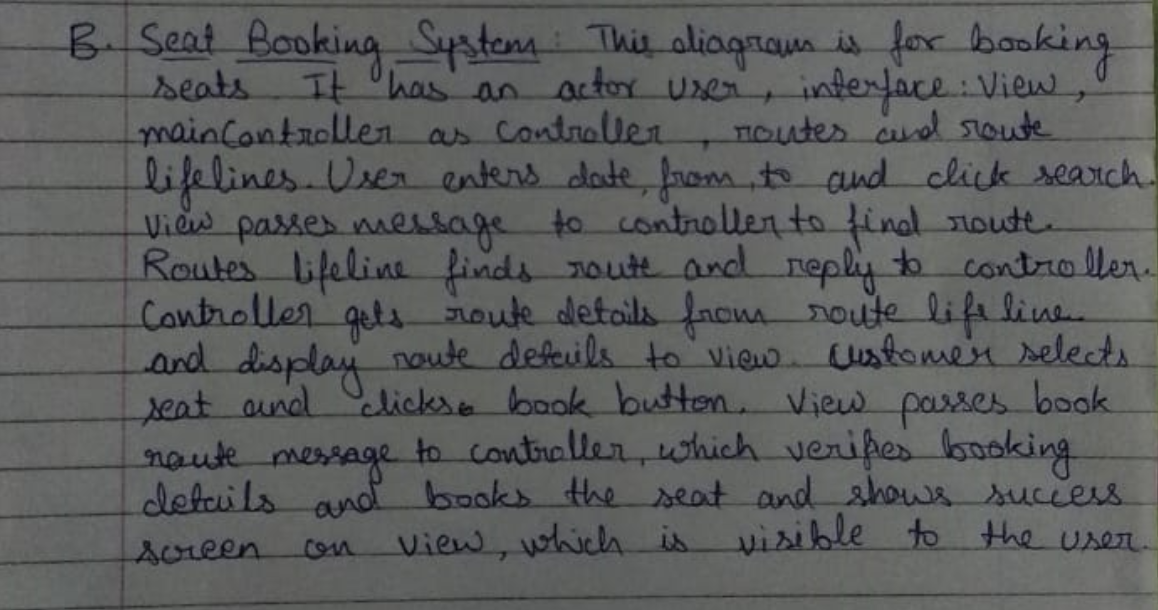 B. Seat Booking System: This diagram is for booking
seats It has an actor User, interface: View,
mainController as controller, routes and route
lifelines. User enters date, from, to and click search.
View passes message to controller to find route.
Routes lifeline finds route and reply to controller.
Controller gets route details from route life line
and display route details to view. Customer selects
seat and clicks book button. View passes book
route message to controller, which verifies booking
details and books the seat and shows success
screen on view, which is visible to the user.